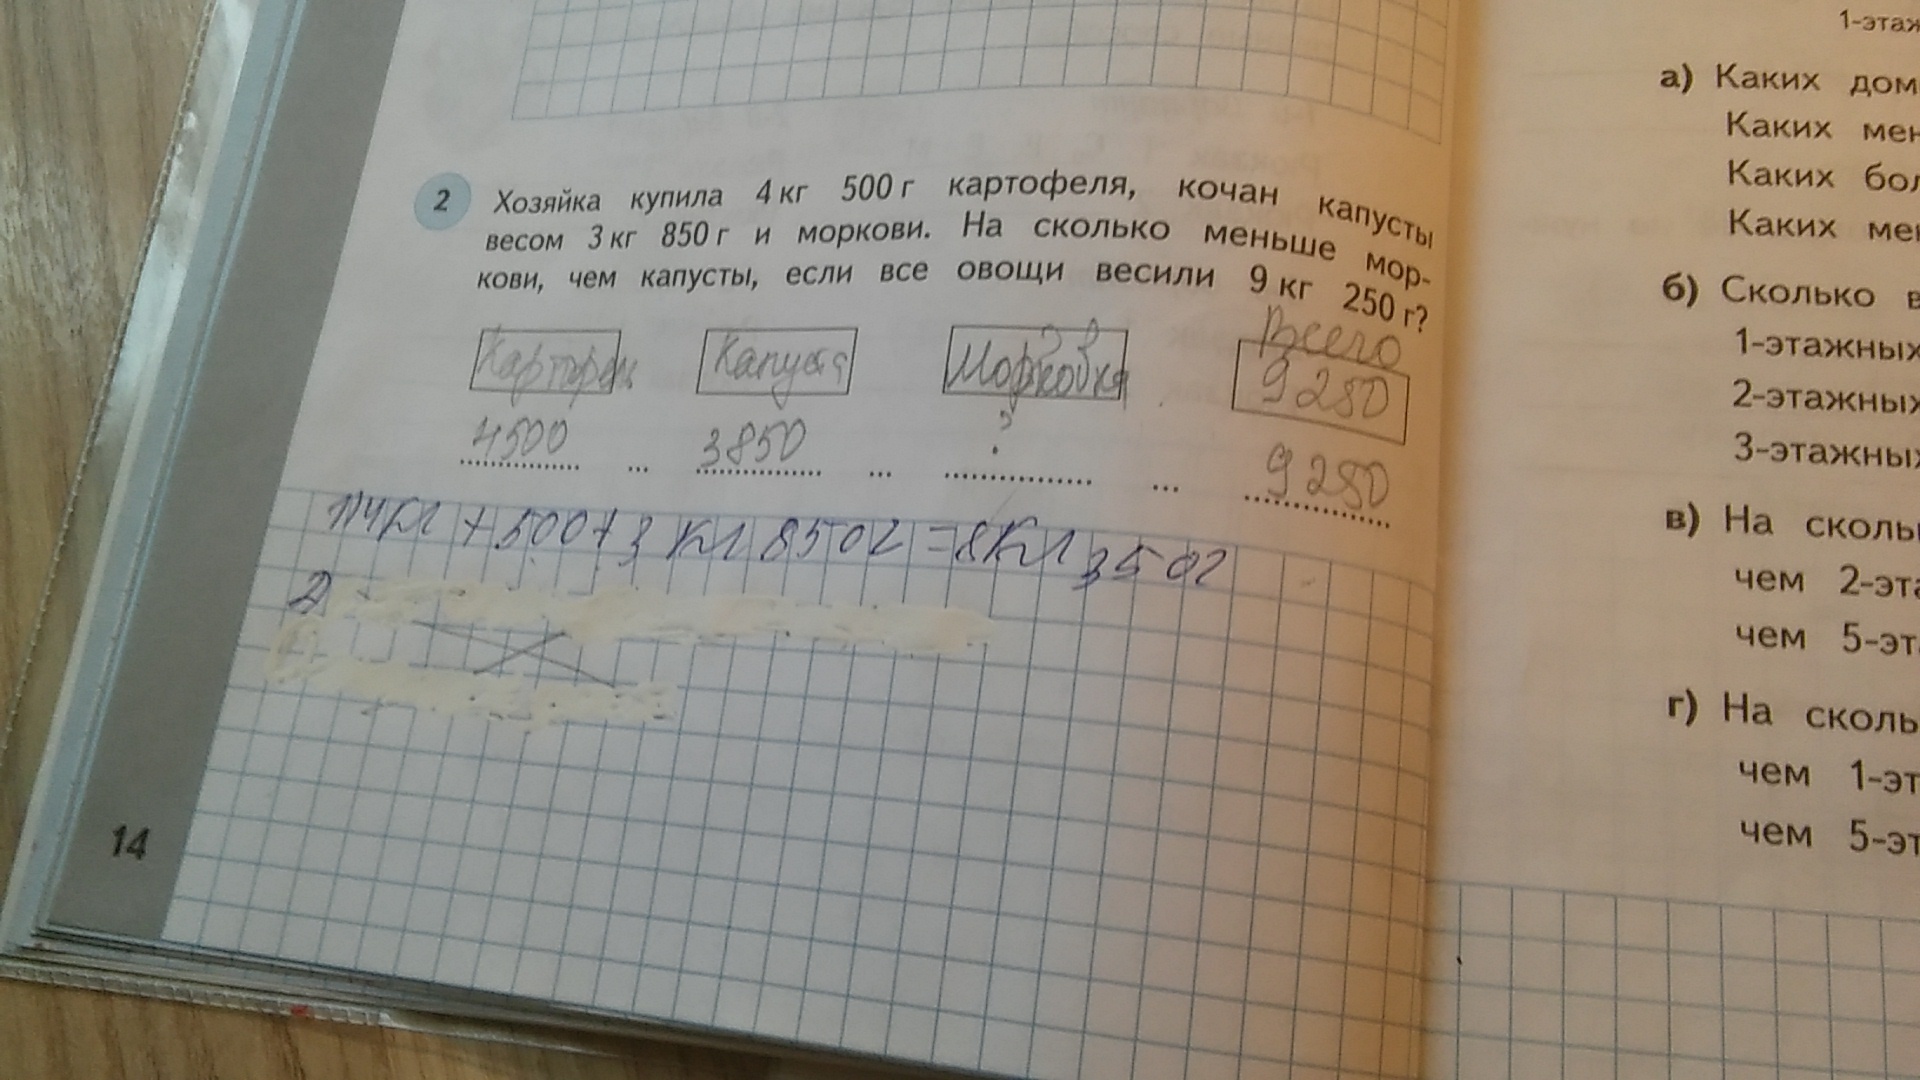 2 Хозяйка купила 4 кг 500 г картофеля, кочан капусты
весом 3 кг 850 г и моркови. На сколько меньше мор-
кови, чем капусты, если все овощи весили 9 кг 250 г?
Всего
Капуста Морковка 9250
4500 ... 3850 ... ? ... 9250
1) 4кг + 500 + 3 кг 850г = 8кг 350г
2
14
1-этаж
а) Каких дом
Каких мен
Каких бол
Каких мен
б) Сколько в
1-этажных
2-этажных
3-этажных
в) На сколь
чем 2-эта
чем 5-эт
г) На сколь
чем 1-эт
чем 5-эт